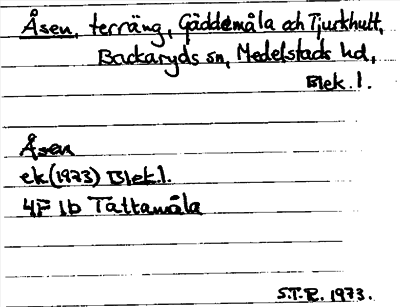 Åsen, terräng, Gäddemåla och Tjurkhult,
Backaryds sn, Medelstads hd,
Blek. l.
Åsen
ek (1973) Blek l.
4F 1b Tattamåla
S.T-R. 1973.